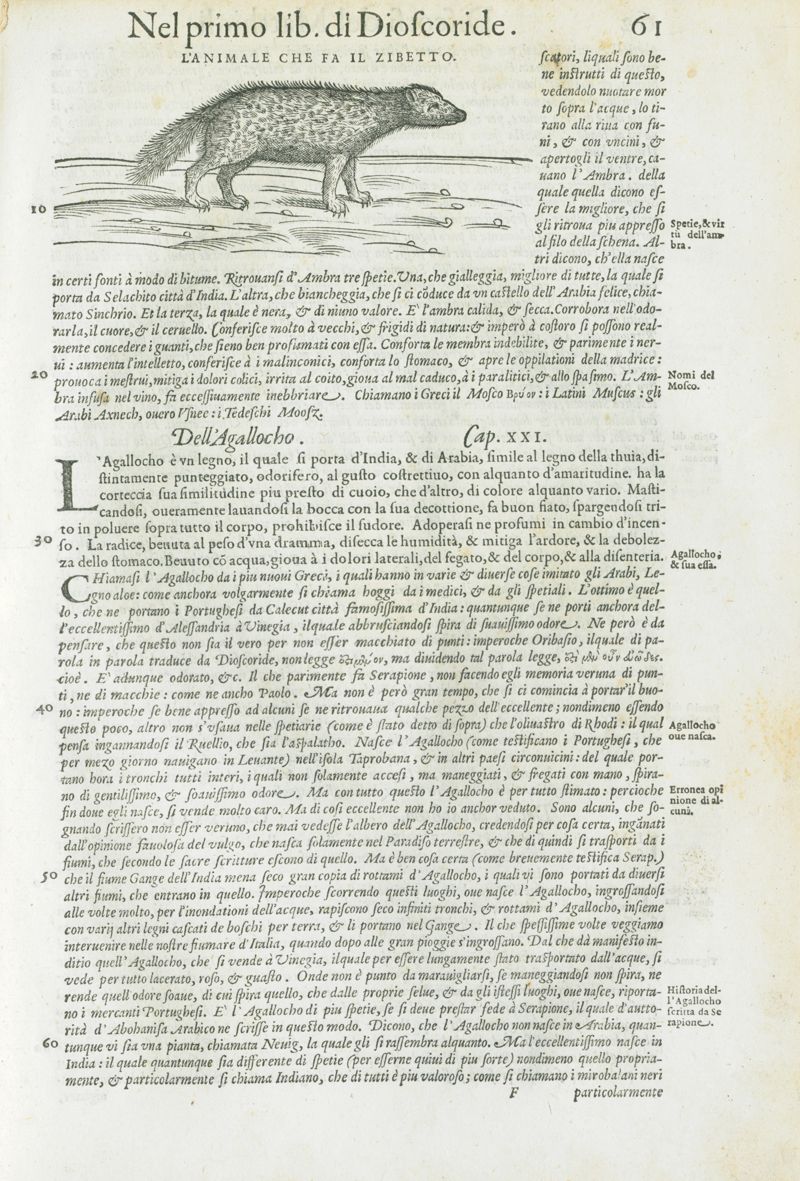 Nel primo lib. di Dioſcoride. 61
L'ANIMALE CHE FA IL ZIBETTO.
ſcatori, liquali ſono be-
ne inſtrutti di queſto,
vedendolo nuotare mor
to ſopra l'acque, lo ti-
rano alla riua con fu-
ni, & con vncini, &
apertogli il ventre, ca-
uano l'Ambra. della
quale quella dicono eſ-
10
ſere la migliore, che ſi
gli ritroua piu appreſſo
al filo della ſchena. Al-
tri dicono, ch'ella naſce
Spetie, & vir
tù dell'am-
bra.
in certi fonti à modo di bitume. Ritrouanſi d'Ambra tre ſpetie. Vna, che gialleggia, migliore di tutte, la quale ſi
porta da Selachito città d'India. L'altra, che biancheggia, che ſi ci cōduce da vn caſtello dell'Arabia felice, chia-
mato Sinchrio. Et la terza, la quale è nera, & di niuno valore. E' l'ambra calida, & ſecca. Corrobora nell'odo-
rarla, il cuore, & il ceruello. Conferiſce molto à vecchi, & frigidi di natura: & imperò à coſtoro ſi poſſono real-
mente concedere i guanti, che ſieno ben profumati con eſſa. Conforta le membra indebilite, & parimente i ner-
ui: aumenta l'intelletto, conferiſce à i malinconici, conforta lo ſtomaco, & apre le oppilationi della madrice:
20
prouoca i meſtrui, mitiga i dolori colici, irrita al coito, gioua al mal caduco, à i paralitici, & allo ſpaſimo. L'Am-
bra infuſa nel vino, fa ecceſſiuamente inebbriare. Chiamano i Greci il Moſco Βρύον: i Latini Muſcus: gli
Arabi Axnech, ouero Vſnec: i Tedeſchi Mooſz.
Nomi del
Moſco.
Dell'Agallocho. Cap. XXI.
L'Agallocho è vn legno, il quale ſi porta d'India, & di Arabia, ſimile al legno della thuia, di-
ſtintamente punteggiato, odorifero, al guſto coſtrettiuo, con alquanto d'amaritudine. ha la
corteccia ſua ſimilitudine piu preſto di cuoio, che d'altro, di colore alquanto vario. Maſti-
candoſi, oueramente lauandoſi la bocca con la ſua decottione, fa buon fiato, ſpargendoſi tri-
to in poluere ſopra tutto il corpo, prohibiſce il ſudore. Adoperaſi ne profumi in cambio d'incen-
30
ſo. La radice, beuuta al peſo d'vna dramma, diſecca le humidità, & mitiga l'ardore, & la debolez-
za dello ſtomaco. Beuuto cō acqua, gioua à i dolori laterali, del fegato, & del corpo, & alla diſenteria.
Agallocho,
& ſua eſſa.
CHiamaſi l'Agallocho da i piu nuoui Greci, i quali hanno in varie & diuerſe coſe imitato gli Arabi, Le-
gno aloe: come anchora volgarmente ſi chiama hoggi da i medici, & da gli ſpetiali. L'ottimo è quel-
lo, che ne portano i Portugheſi da Calecut città famoſiſſima d'India: quantunque ſe ne porti anchora del-
l'eccellentiſſimo d'Aleſſandria à Vinegia, ilquale abbruſciandoſi ſpira di ſuauiſſimo odore. Ne però è da
penſare, che queſto non ſia il vero per non eſſer macchiato di punti: imperoche Oribaſio, ilquale di pa-
rola in parola traduce da Dioſcoride, non legge , ma diuidendo tal parola legge,
cioè. E' adunque odorato, &c. Il che parimente fa Serapione, non facendo egli memoria veruna di pun-
ti, ne di macchie: come ne ancho Paolo. Ma non è però gran tempo, che ſi ci comincia à portar'il buo-
40
no: imperoche ſe bene appreſſo ad alcuni ſe ne ritrouaua qualche pezzo dell'eccellente; nondimeno eſſendo
queſto poco, altro non s'vſaua nelle ſpetiarie (come è ſtato detto di ſopra) che l'oliuaſtro di Rhodi: il qual
penſa ingannandoſi il Ruellio, che ſia l'aſpalatho. Naſce l'Agallocho (come teſtificano i Portugheſi, che
per mezo giorno nauigano in Leuante) nell'iſola Taprobana, & in altri paeſi circonuicini: del quale por-
tano hora i tronchi tutti interi, i quali non ſolamente acceſi, ma maneggiati, & fregati con mano, ſpira-
no di gentiliſſimo, & ſoauiſſimo odore. Ma con tutto queſto l'Agallocho è per tutto ſtimato: percioche
fin doue egli naſce, ſi vende molto caro. Ma di coſi eccellente non ho io anchor veduto. Sono alcuni, che ſo-
gnando ſcriſſero non eſſer veruno, che mai vedeſſe l'albero dell'Agallocho, credendoſi per coſa certa, ingānati
dall'opinione fauoloſa del vulgo, che naſca ſolamente nel Paradiſo terreſtre, & che di quindi ſi traſporti da i
fiumi, che ſecondo le ſacre ſcritture eſcono di quello. Ma è ben coſa certa (come breuemente teſtifica Serap.)
50
che il fiume Gange dell'India mena ſeco gran copia di rottami d'Agallocho, i quali vi ſono portati da diuerſi
altri fiumi, che entrano in quello. Imperoche ſcorrendo queſti luoghi, oue naſce l'Agallocho, ingroſſandoſi
alle volte molto, per l'inondationi dell'acque, rapiſcono ſeco infiniti tronchi, & rottami d'Agallocho, inſieme
con varij altri legni caſcati de boſchi per terra, & li portano nel Gange. Il che ſpeſſiſſime volte veggiamo
interuenire nelle noſtre fiumare d'Italia, quando dopo alle gran pioggie s'ingroſſano. Dal che dà manifeſto in-
ditio quell'Agallocho, che ſi vende à Vinegia, ilquale per eſſere lungamente ſtato traſportato dall'acque, ſi
vede per tutto lacerato, roſo, & guaſto. Onde non è punto da marauigliarſi, ſe maneggiandoſi non ſpira, ne
rende quell'odore ſoaue, di cui ſpira quello, che dalle proprie ſelue, & da gli iſteſſi luoghi, oue naſce, riporta-
no i mercanti Portugheſi. E' l'Agallocho di piu ſpetie, ſe ſi deue preſtar fede à Serapione, il quale d'autto-
rità d'Abohaniſa Arabico ne ſcriſſe in queſto modo. Dicono, che l'Agallocho non naſce in Arabia, quan-
60
tunque vi ſia vna pianta, chiamata Neuig, la quale gli ſi raſſembra alquanto. Ma l'eccellentiſſimo naſce in
India: il quale quantunque ſia differente di ſpetie (per eſſerne quiui di piu ſorte) nondimeno quello propria-
mente, & particolarmente ſi chiama Indiano, che di tutti è piu valoroſo; come ſi chiamano i mirobalani neri
Agallocho
oue naſca.
Erronea opi
nione di al-
cuni.
Hiſtoria del-
l'Agallocho
ſcritta da Se
rapione.
F particolarmente